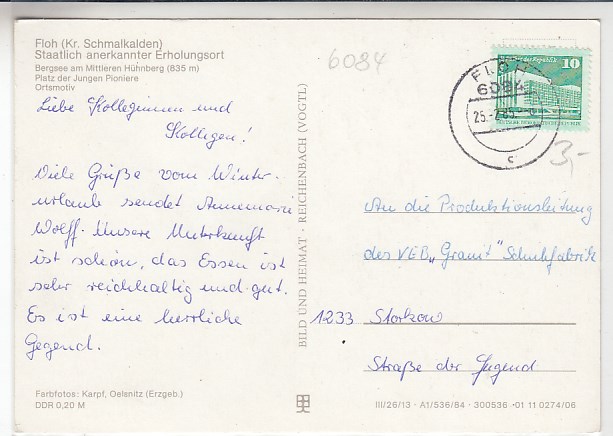 Floh (Kr. Schmalkalden)
Staatlich anerkannter Erholungsort
Bergsee am Mittleren Hühnberg (835 m)
Platz der Jungen Pioniere
Ortsmotiv
6084
Liebe Kolleginnen und
Kollegen!
Viele Grüße vom Winter-
urlaub sendet Annemarie
Wolff. Unsere Unterkunft
ist schön, das Essen ist
sehr reichhaltig und gut.
Es ist eine herrliche
Gegend.
Farbfotos: Karpf, Oelsnitz (Erzgeb.)
DDR 0,20 M
BILD UND HEIMAT · REICHENBACH (VOGTL)
der Republik 10
DEUTSCHE DEMOKRATISCHE
FLOH
6084
25.-2.85
c
3,-
An die Produktionsleitung
des VEB „Granit" Schuhfabrik
1233 Storkow
Straße der Jugend
III/26/13 · A1/536/84 · 300536 ·01 11 0274/06